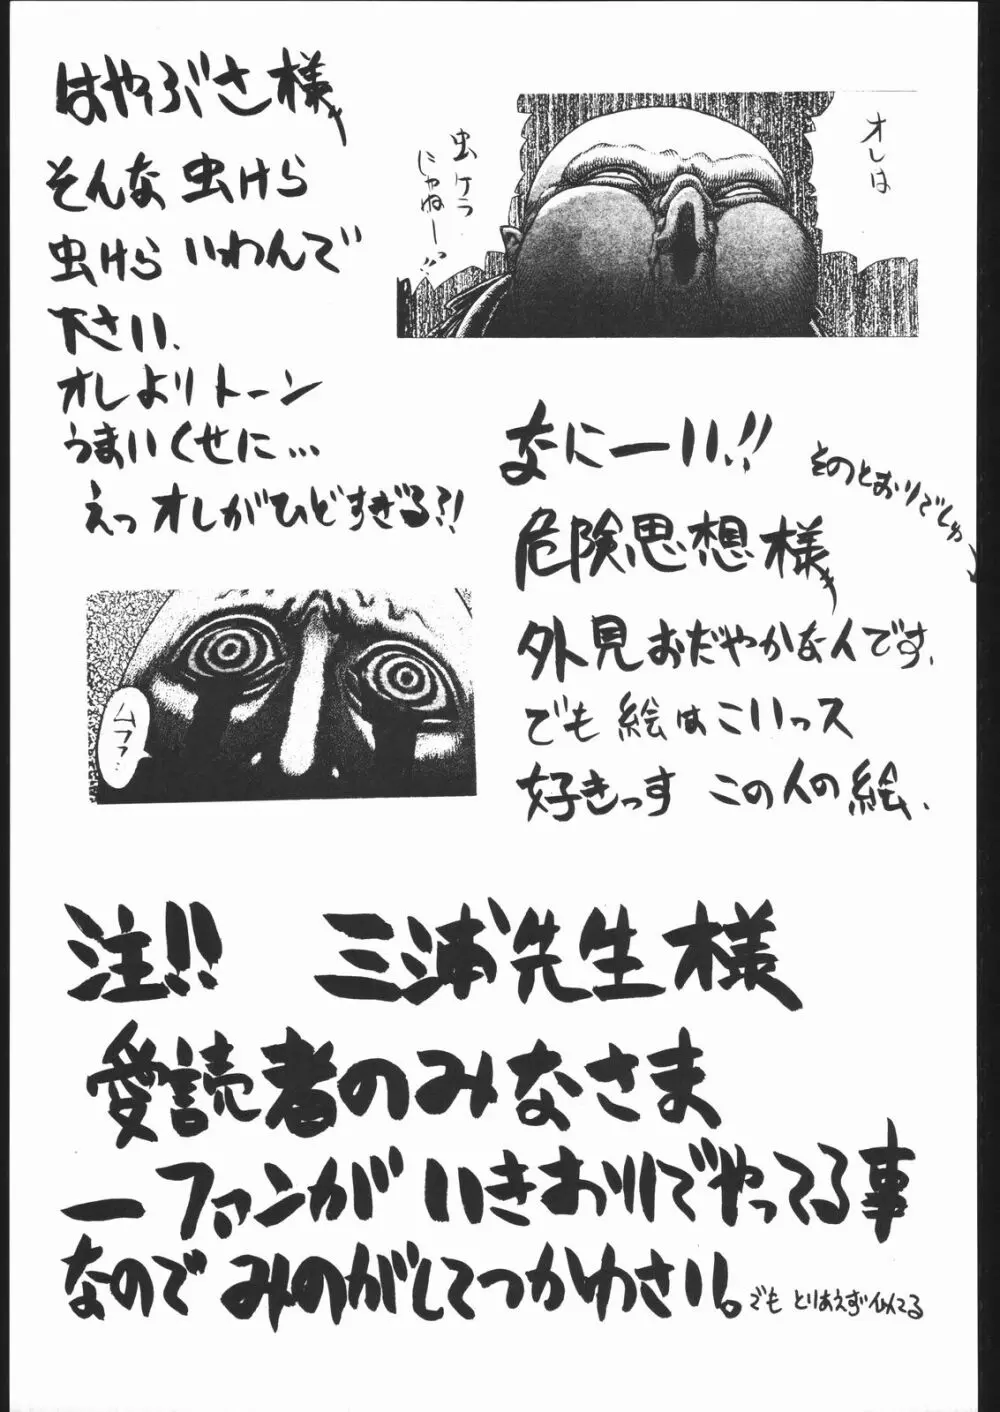 はやぶさ様
そんな虫けら
虫けらいわんで
下さい、
オレよりトーン
うまいくせに…
えっオレがひどすぎる?!
オレは
虫ケラ
じゃねー!!
なにーい!!
そのとおりでしゅ→
危険思想様
外見おだやかな人です、
でも絵はこいっス
好きっす この人の絵、
ムファ…
注!! 三浦先生様
愛読者のみなさま
一ファンがいきおいでやってる事
なのでみのがしてつかわさい。でも とりあえず似てる